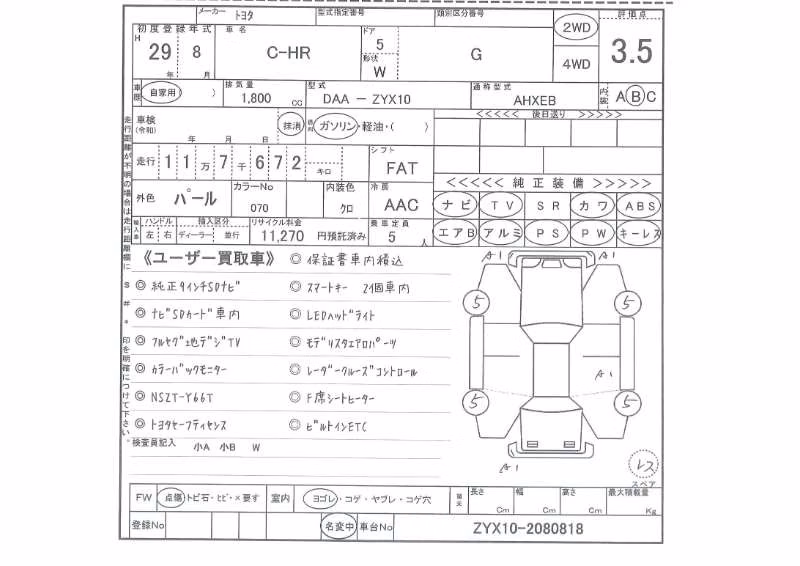 メーカー トヨタ 型式指定番号 類別区分番号 評価点
初度登録年式 車名 ドア 2WD 3.5
H 29 8 C-HR 5 G
年 月 形状 W 4WD
車歴 自家用 ) 排気量 1,800 cc 型式 DAA － ZYX10 通称型式 AHXEB 内装 A B C
車検 (令和) 年 月 日 抹消 燃料 ガソリン・軽油・( ) <<<<< 後日送り >>>>>
走行 1 1 万 7 千 6 7 2 キロ シフト FAT
<<<<< 純正装備 >>>>>
外色 パール カラーNo 070 内装色 クロ 冷房 AAC ナビ TV SR カワ ABS
輸入車 ハンドル 左 右 輸入区分 ディーラー 並行 リサイクル料金 11,270 円預託済み 乗車定員 5 人 エアB アルミ PS PW キーレス
走行距離が不明の場合は走行距離欄に $ # * 印を明確につけて下さい。
《ユーザー買取車》 ◎ 保証書車内積込
◎ 純正9インチSDナビ ◎ スマートキー 2個車内
◎ ナビSDカード車内 ◎ LEDヘッドライト
◎ フルセグ地デジTV ◎ モデリスタエアロパーツ
◎ カラーバックモニター ◎ レーダークルーズコントロール
◎ NSZT-Y66T ◎ F席シートヒーター
◎ トヨタセーフティセンス ◎ ビルトインETC
検査員記入 小A 小B W
A1 A1
5 5
A1
5 5
A1
レス
スペア
FW 点傷・トビ石・ヒビ・×要す 室内 ヨゴレ・コゲ・ヤブレ・コゲ穴 長さ Cm 幅 Cm 高さ Cm 最大積載量 Kg
登録No 名変中 車台No ZYX10-2080818